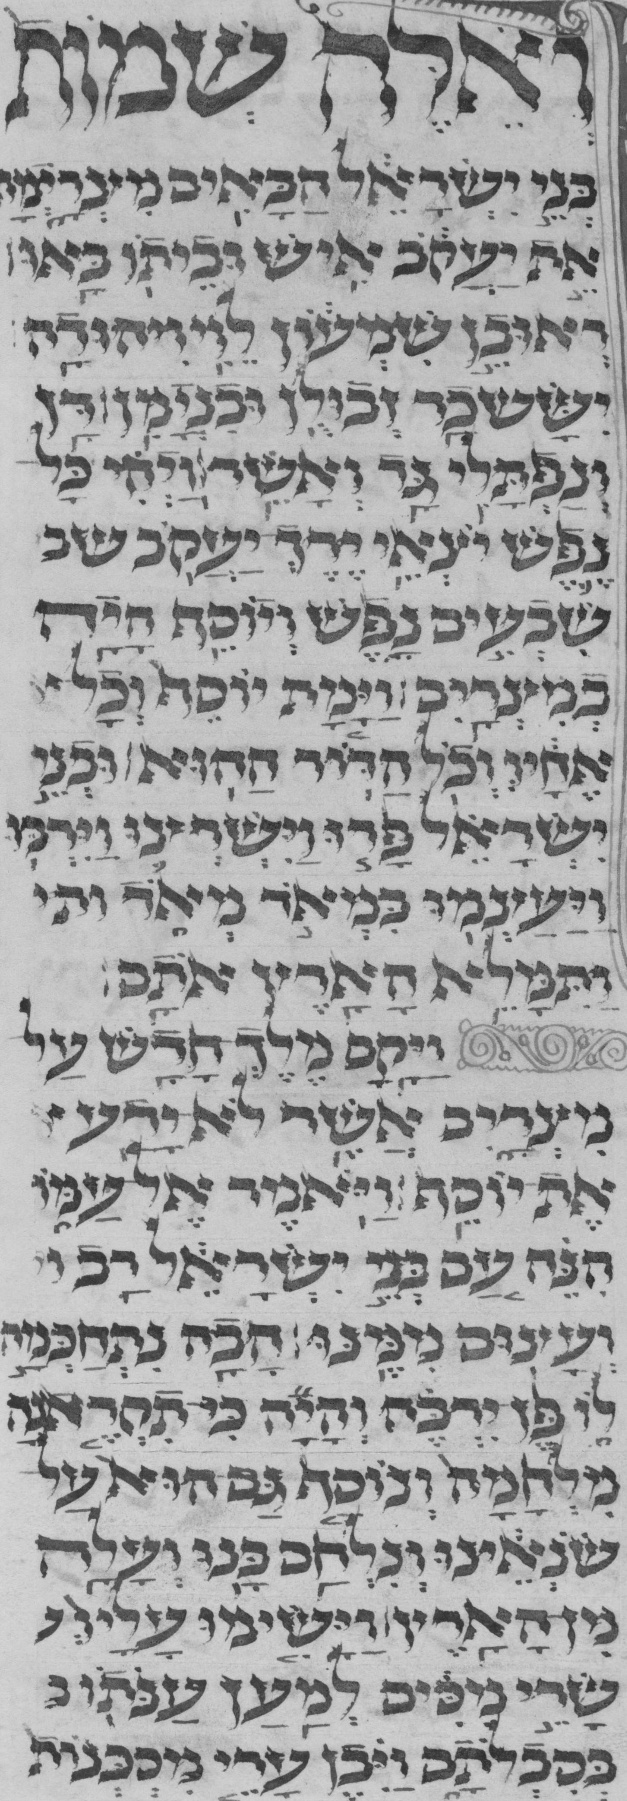 וְאֵלֶּה שְׁמוֹת
בְּנֵי יִשְׂרָאֵל הַבָּאִים מִצְרָיְמָה
אֵת יַעֲקֹב אִישׁ וּבֵיתוֹ בָּאוּ
רְאוּבֵן שִׁמְעוֹן לֵוִי וִיהוּדָה
יִשָּׂשכָר זְבוּלֻן וּבִנְיָמִן דָּן
וְנַפְתָּלִי גָּד וְאָשֵׁר וַיְהִי כָּל
נֶפֶשׁ יֹצְאֵי יֶרֶךְ יַעֲקֹב שב
שִׁבְעִים נָפֶשׁ וְיוֹסֵף הָיָה
בְמִצְרָיִם וַיָּמָת יוֹסֵף וְכָל
אֶחָיו וְכֹל הַדּוֹר הַהוּא וּבְנֵי
יִשְׂרָאֵל פָּרוּ וַיִּשְׁרְיצוּ וַיִּרְבּוּ
וַיַּעַצְמוּ בִּמְאֹד מְאֹד ותי
וַתִּמָּלֵא הָאָרֶץ אֹתָם
וַיָּקָם מֶלֶךְ חָדָשׁ עַל
מִצְרָיִם אֲשֶׁר לֹא יָדַע
אֶת יוֹסֵף וַיֹּאמֶר אֶל עַמּוֹ
הִנֵּה עַם בְּנֵי יִשְׂרָאֵל רַב
וְעָצוּם מִמֶּנּוּ הָבָה נִתְחַכְּמָה
לוֹ פֶּן יִרְבֶּה וְהָיָה כִּי תִקְרֶאנָה
מִלְחָמָה וְנוֹסַף גַּם הוּא עַל
שֹׂנְאֵינוּ וְנִלְחַם בָּנוּ וְעָלָה
מִן הָאָרֶץ וַיָּשִׂימוּ עָלָיו
שָׂרֵי מִסִּים לְמַעַן עַנֹּתוֹ
בְּסִבְלֹתָם וַיִּבֶן עָרֵי מִסְכְּנוֹת